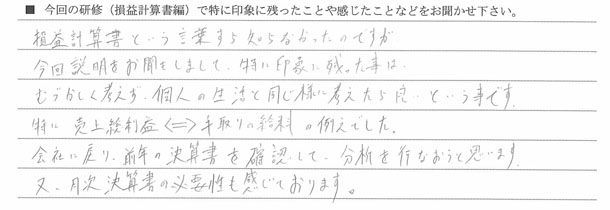 ■ 今回の研修（損益計算書編）で特に印象に残ったことや感じたことなどをお聞かせ下さい。
損益計算書という言葉すら知らなかったのですが
今回説明をお聞をしまして、特に印象に残った事は、
むづかしく考えず、個人の生活と同じ様に考えたら良いという事です。
特に 売上総利益⇔手取りの給料の例えでした。
会社に戻り、前年の決算書を確認して、分析を行なおうと思います。
又、月次決算書の必要性も感じております。